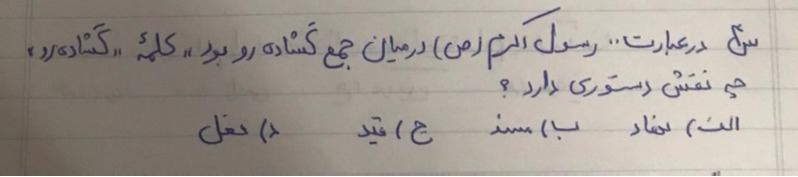 س۴ در عبارت «رسول اکرم (ص) در میان جمع گشاده رو بود» کلمۀ «گشاده‌رو»
چه نقش دستوری دارد ؟
الف) نهاد ب) مسند ج) قید د) فعل